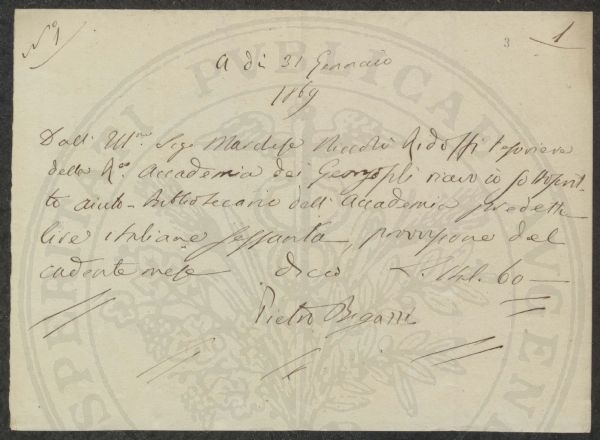 N° 1
3
1
A dì 31 Gennaio
1869
Dall' Ill.mo Sig. Marchese Niccolò Ridolfi Tesoriere
della R.a Accademia dei Georgofili ricevo io sottoscrit-
to aiuto-Bibliotecario dell'Accademia predetta
lire italiane sessanta, provvisione del
cadente mese dico L. Ital. 60 —
Pietro Bigazzi